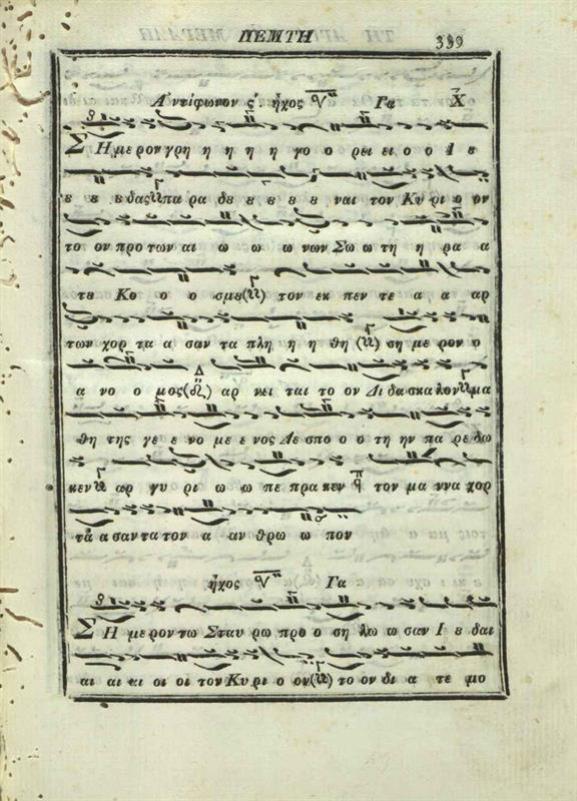 ΠΕΜΤΗ 339
Ἀντίφωνον ς΄. ἦχος Γα Χ
ΣΗ με ρον γρη η η η η γο ο ρει ει ο ο Ι ȣ
ȣ ȣ ȣ δας πα ρα δȣ ȣ ȣ ȣ ȣ ναι τον Κυ ρι ο ον
το ον προ των αι ω ω ω νων Σω ω τη η ρα α
τȣ Κο ο ο σμȣ τον εκ πεν τε α α αρ
των χορ τα α σαν τα πλη η η θη ση με ρον ο
α νο ο μος αρ νει ται το ον Δι δα σκα λον μα
θη της γε ε νο με ε νος Δε σπο ο ο τη ην πα ρε δω
κεν αρ γυ ρι ω ω πε πρα κεν τον μα ννα χορ
τα α σαν τα τον α αν θρω ω πον
ἦχος Γα
ΣΗ με ρον τω Σταυ ρω προ ο ση λω ω σαν Ι ȣ δαι
αι αι κι οι οι τον Κυ ρι ο ον το ον δι α τε μο